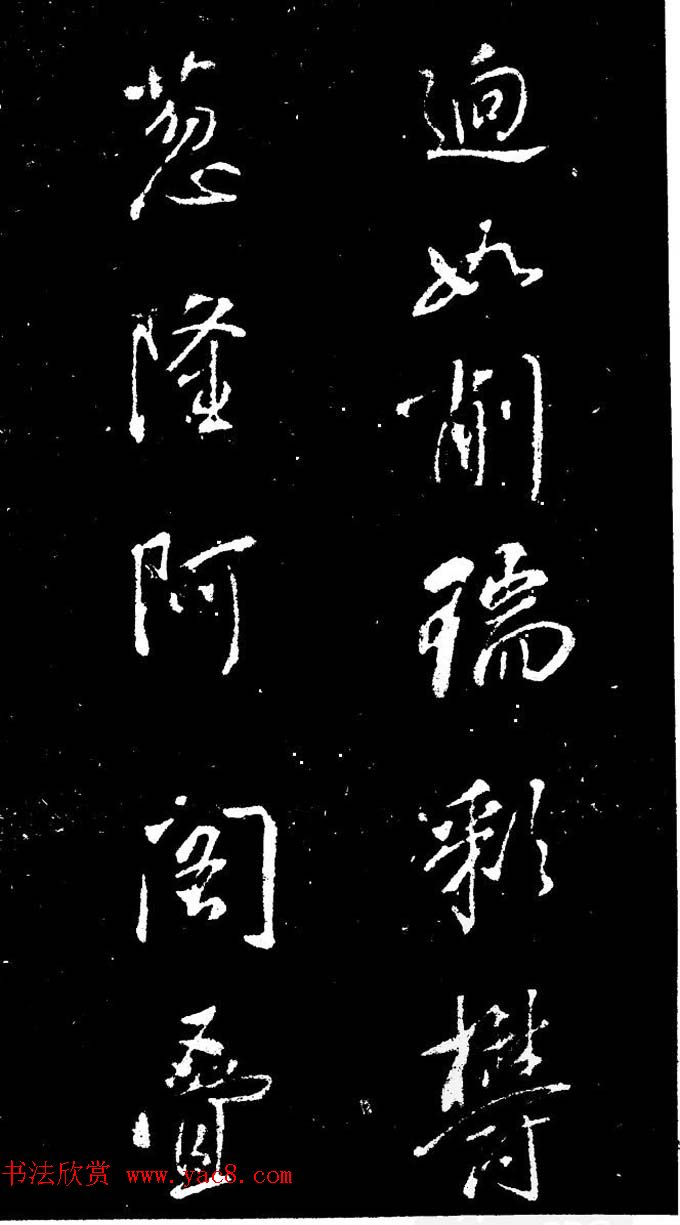 迥如削瑞彩欝
葱隆阿閣疊
书法欣赏 www.yac8.com